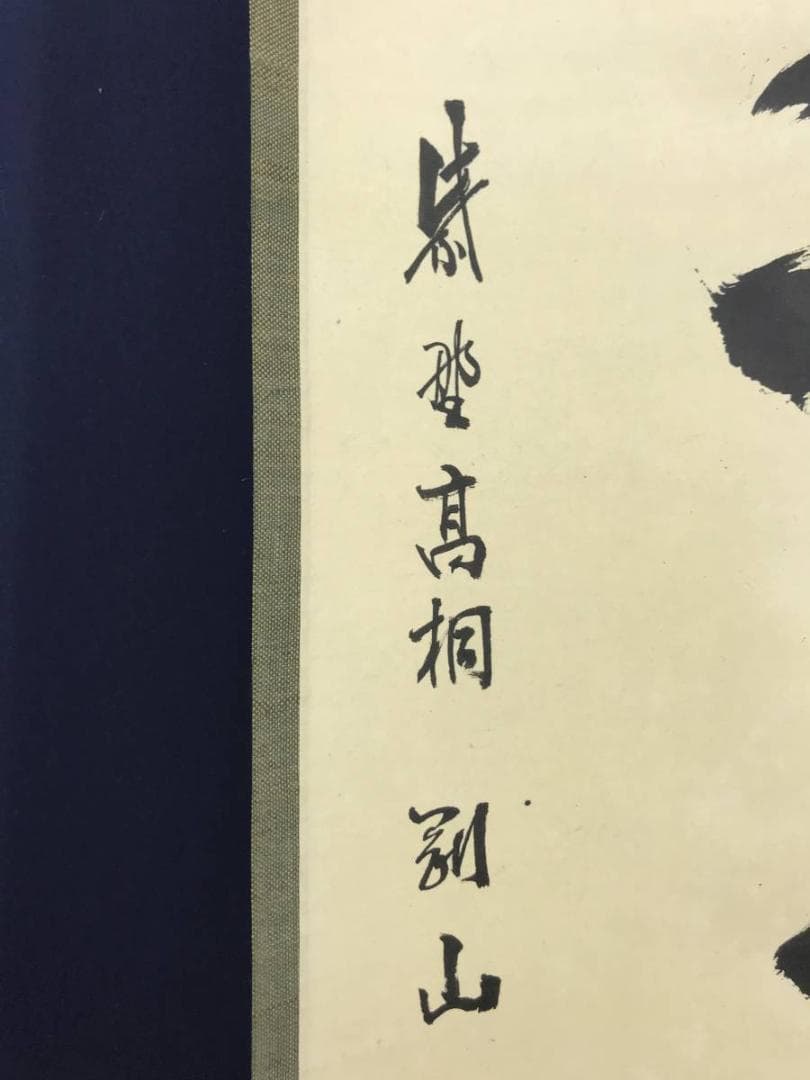 紫野高桐 剛山